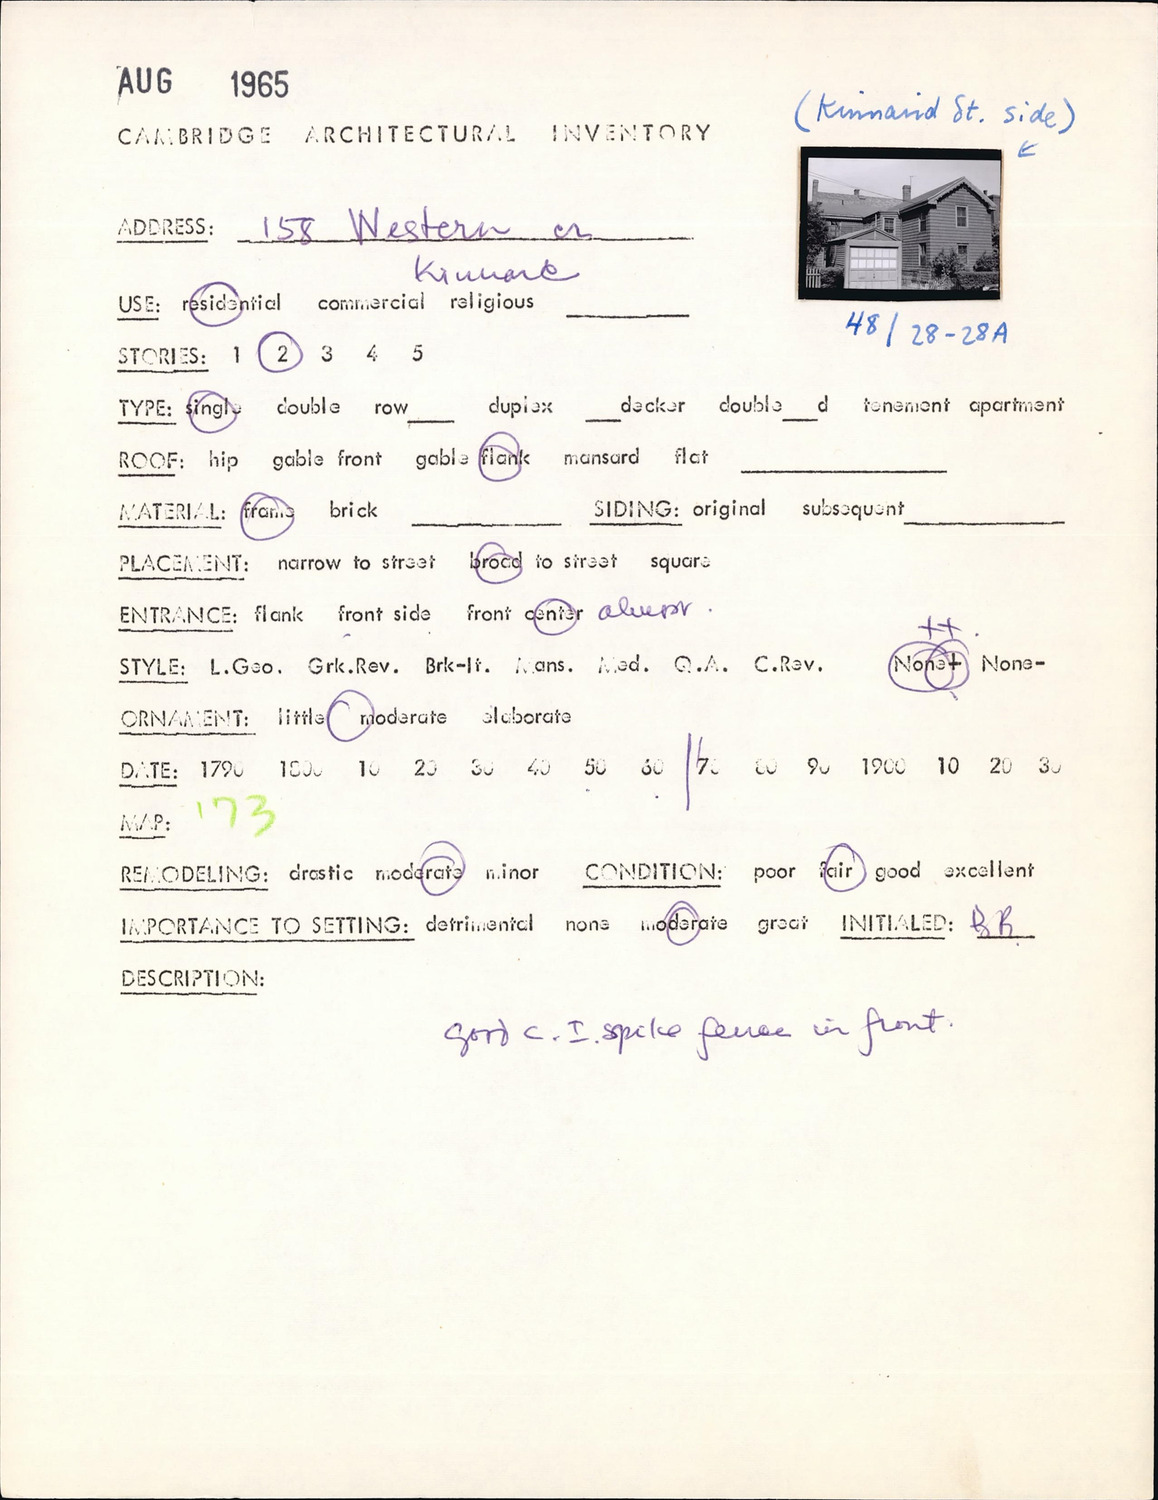 AUG 1965
(Kinnaird St. side)
CAMBRIDGE ARCHITECTURAL INVENTORY
ADDRESS: 158 Western cr
Kinnard
48/28-28A
USE: residential commercial religious
STORIES: 1 2 3 4 5
TYPE: single double row___ duplex ___decker double___d tenement apartment
ROOF: hip gable front gable flank mansard flat
MATERIAL: frame brick SIDING: original subsequent
PLACEMENT: narrow to street broad to street square
ENTRANCE: flank front side front center almost.
++
STYLE: L.Geo. Grk.Rev. Brk-It. Mans. Med. Q.A. C.Rev. None+ None-
ORNAMENT: little moderate elaborate
DATE: 1790 1800 10 20 30 40 50 60 70 80 90 1900 10 20 30
MAP: '73
REMODELING: drastic moderate minor CONDITION: poor fair good excellent
IMPORTANCE TO SETTING: detrimental none moderate great INITIALED: BR
DESCRIPTION:
good c. I. spike fence in front.